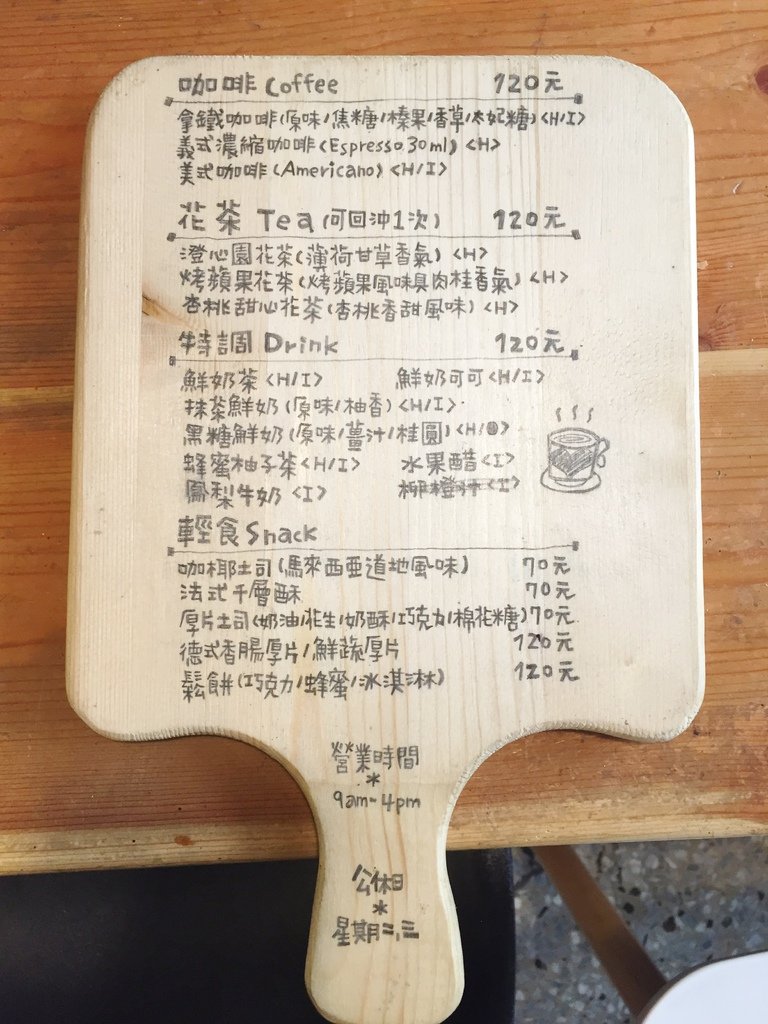 咖啡 Coffee 120元
拿鐵咖啡(原味/焦糖/榛果/香草/太妃糖)<H/I>
義式濃縮咖啡(Espresso 30ml) <H>
美式咖啡(Americano) <H/I>
花茶 Tea(可回沖1次) 120元
澄心園花茶(薄荷甘草香氣) <H>
烤蘋果花茶(烤蘋果風味與肉桂香氣) <H>
杏桃甜心花茶(杏桃香甜風味) <H>
特調 Drink 120元
鮮奶茶 <H/I> 鮮奶可可<H/I>
抹茶鮮奶(原味/柚香) <H/I>
黑糖鮮奶(原味/薑汁/桂圓) <H/>
蜂蜜柚子茶<H/I> 水果醋<I>
鳳梨牛奶 <I> 柳橙汁<I>
輕食 Snack
咖椰土司(馬來西亞道地風味) 70元
法式千層酥 70元
厚片土司(奶油/花生/奶酥/巧克力/棉花糖) 70元
德式香腸厚片/鮮蔬厚片 120元
鬆餅(巧克力/蜂蜜/冰淇淋) 120元
營業時間
*
9am-4pm
公休日
*
星期二、三